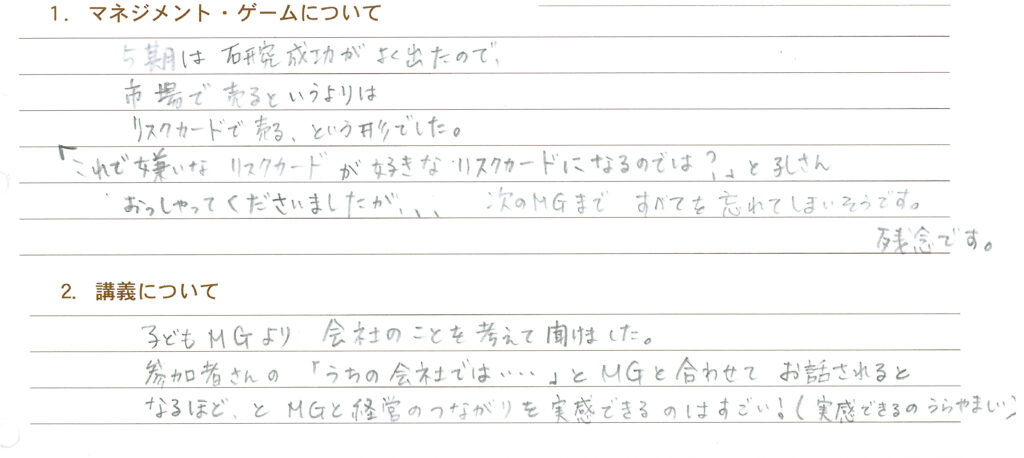 1. マネジメント・ゲームについて
5期は 研究成功が よく出たので、
市場で 売るというよりは
リスクカードで 売る、という形でした。
「これで嫌いな リスクカード が 好きな リスクカードになるのでは?」と 孔さん
おっしゃってくださいましたが、、、 次のMGまで すべてを 忘れてしまいそうです。
残念です。
2. 講義について
子ども MGより 会社のことを 考えて 聞けました。
参加者さんの 「うちの会社では・・・・」と MGと合わせて お話されると
なるほど、と MGと 経営のつながりを 実感できるのはすごい!(実感できるの うらやましい)